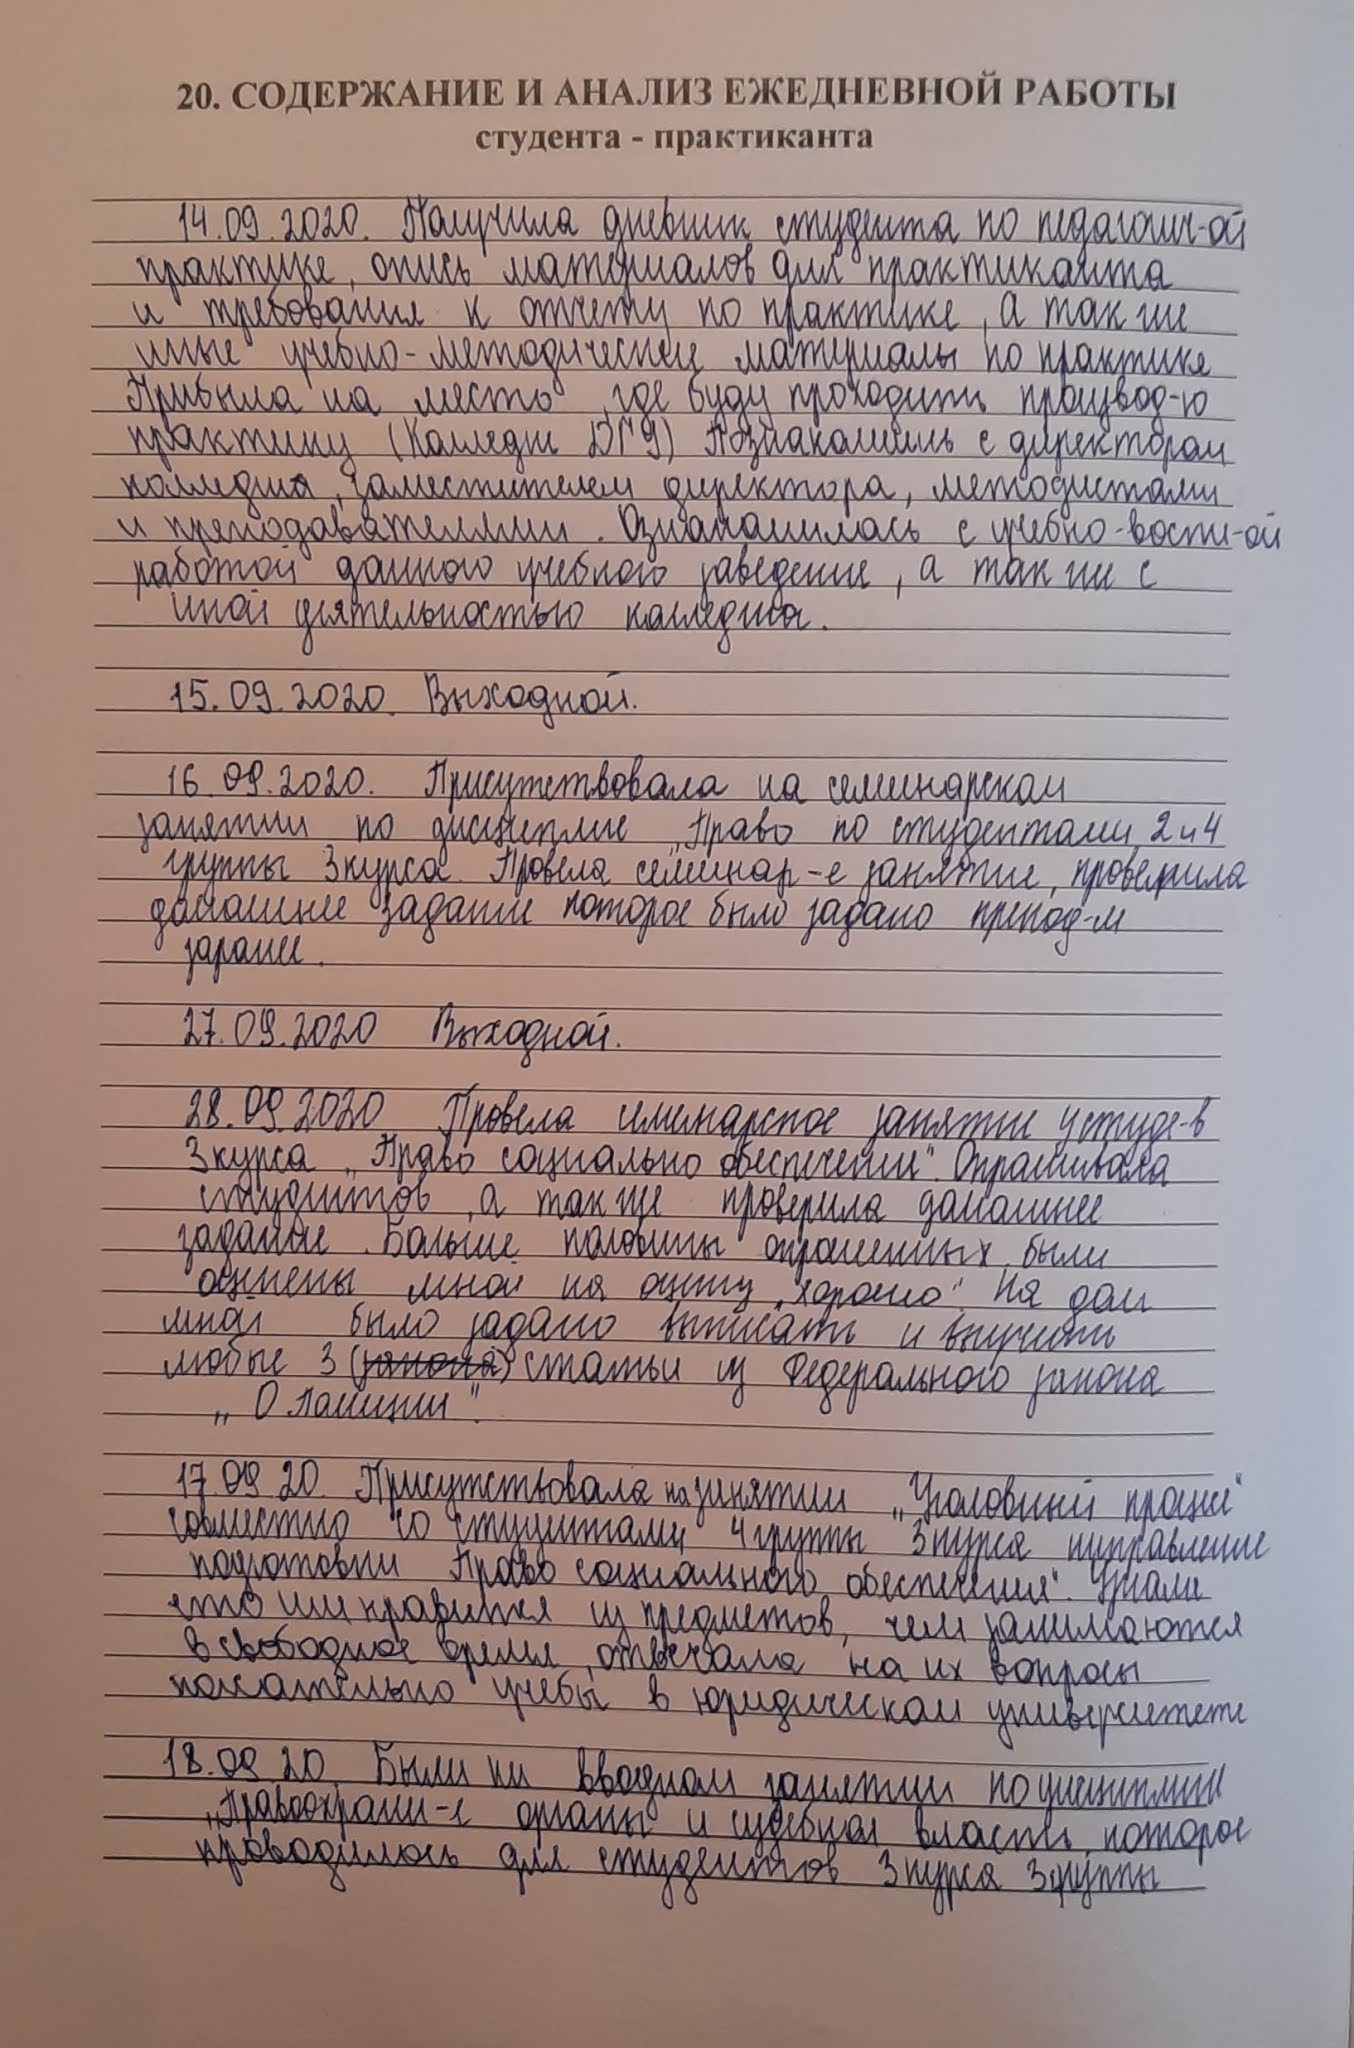 20. СОДЕРЖАНИЕ И АНАЛИЗ ЕЖЕДНЕВНОЙ РАБОТЫ
студента - практиканта
14.09.2020. Получила дневник студента по педагогич-ой
практике, опись материалов для практиканта
и требования к отчету по практике, а так же
иные учебно-методические материалы по практике
Прибыла на место, где буду проходить производ-ю
практику (Колледж ДГУ) Познакомилась с директором
колледжа, заместителем директора, методистами
и преподавателями. Ознакомилась с учебно-восп-ой
работой данного учебного заведение, а так же с
иной деятельностью колледжа.
15.09.2020. Выходной.
16.09.2020. Присутствовала на семинарском
занятии по дисциплине „Право по студентами 2 и 4
группы 3 курса. Провела семинар-е занятие, проверила
домашнее задание которое было задано препод-м
заранее.
27.09.2020 Выходной.
28.09.2020 Провела семинарское занятие у студе-в
3 курса „Право социально обеспечении". Опрашивала
студентов, а так же проверила домашнее
задание. Больше половины опрошенных были
оценены мной на оценку „хорошо". На дом
мной было задано выписать и выучить
любые 3 (закона) статьи из Федерального закона
„О полиции".
17.09.20. Присутствовала на занятии „Уголовный процесс"
совместно со студентами 4 группы 3 курса направление
подготовки Право социального обеспечения". Узнала
что им нравится из предметов, чем занимаются
в свободное время, отвечала на их вопросы
касательно учебы в юридическом университете
18.09.20 Были на вводном занятии по дисциплине
„Правоохрани-е органы и судебная власть, которое
проводилось для студентов 3 курса 3 группы